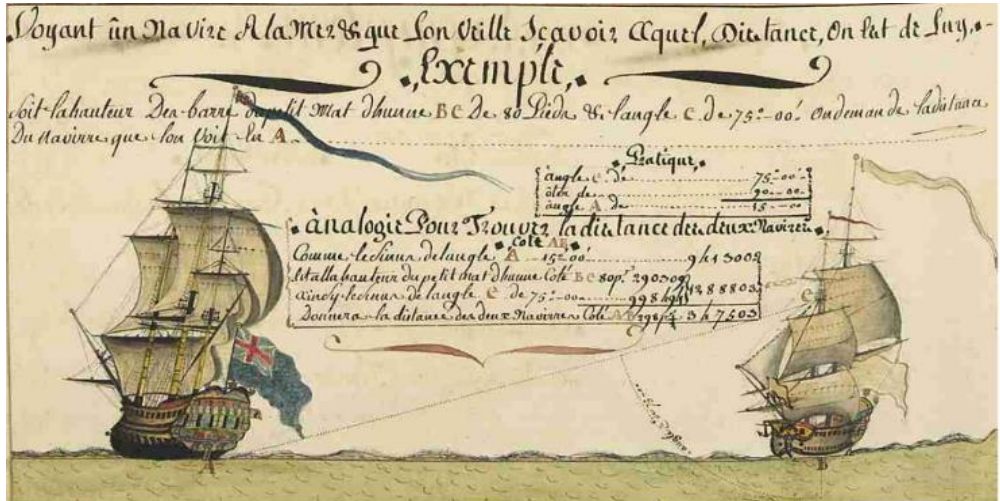 Voyant ûn Navire A la Mer & que Lon Veille Sçavoir Aquel, Distance, On Est de Luy,
Exemple,
Soit la hauteur Des barre du petit mat dhunne BC De 80 Pieds & langle C. de 75°-00' On demande la distance
Du Navirre que lon Voit En A.
Pratique,
angle C de 75-00
ôter de 90-00
angle A de 15-00
ânalogie Pour Trouver la distance des deux Navires
Coté AB
Comme le sinus de langle A 15°00' 9413002
Est a la hauteur du petit mat dhunne Coté BC 80 pi. 290309
Ainsy le sinus de langle C de 75°-00 998494 1288803
Donnera la distance des deux Navirres Coté AB 298 pi 347503
C
A
B